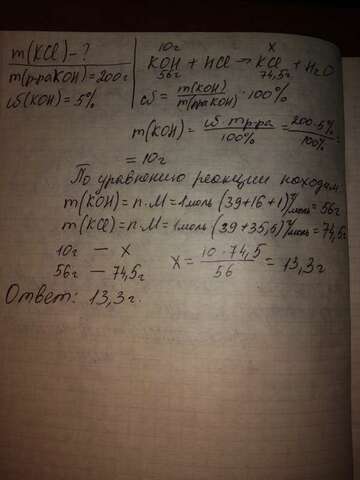 m(KCl) - ?
m(р-ра KOH) = 200г
ω(KOH) = 5%
10г x
KOH + HCl → KCl + H₂O
56г 74,5г
ω = m(KOH) / m(р-ра KOH) · 100%
m(KOH) = ω · m р-ра / 100% = 200 · 5% / 100% =
= 10г
По уравнению реакции находим
m(KOH) = n · M = 1моль (39+16+1) г/моль = 56г
m(KCl) = n · M = 1моль (39+35,5) г/моль = 74,5г
10г — x
56г — 74,5г
x = 10 · 74,5 / 56 = 13,3г
Ответ: 13,3г.